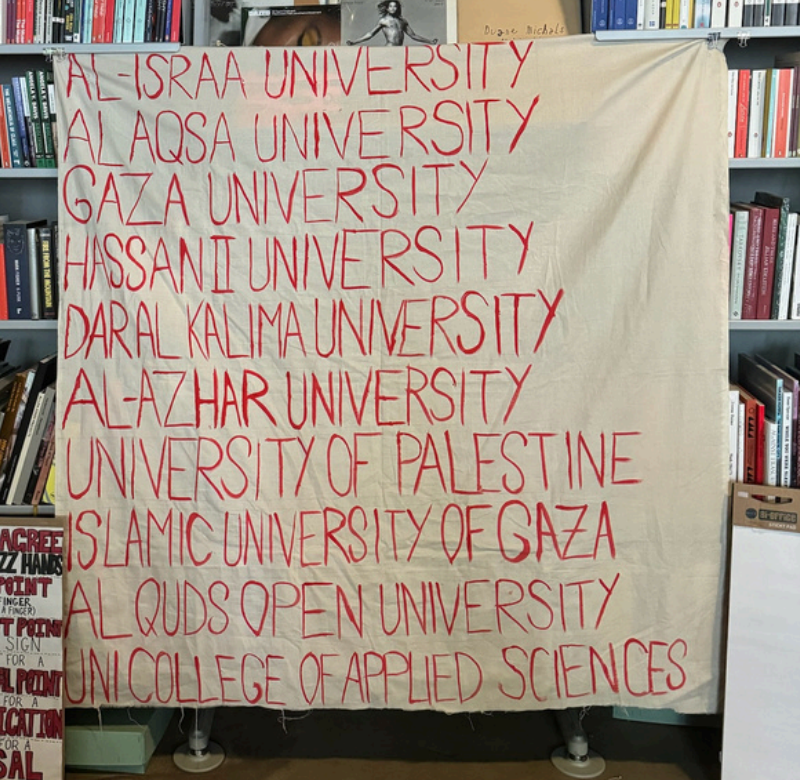 Duane Michals
AL-ISRAA UNIVERSITY
AL AQSA UNIVERSITY
GAZA UNIVERSITY
HASSAN II UNIVERSITY
DAR AL KALIMA UNIVERSITY
AL-AZHAR UNIVERSITY
UNIVERSITY OF PALESTINE
ISLAMIC UNIVERSITY OF GAZA
AL QUDS OPEN UNIVERSITY
UNI COLLEGE OF APPLIED SCIENCES
AGREE
ZZ HANDS
POINT
FINGER
A FINGER)
T POINT
SIGN
FOR A
AL POINT
FOR A
ICATION
FOR A
SAL